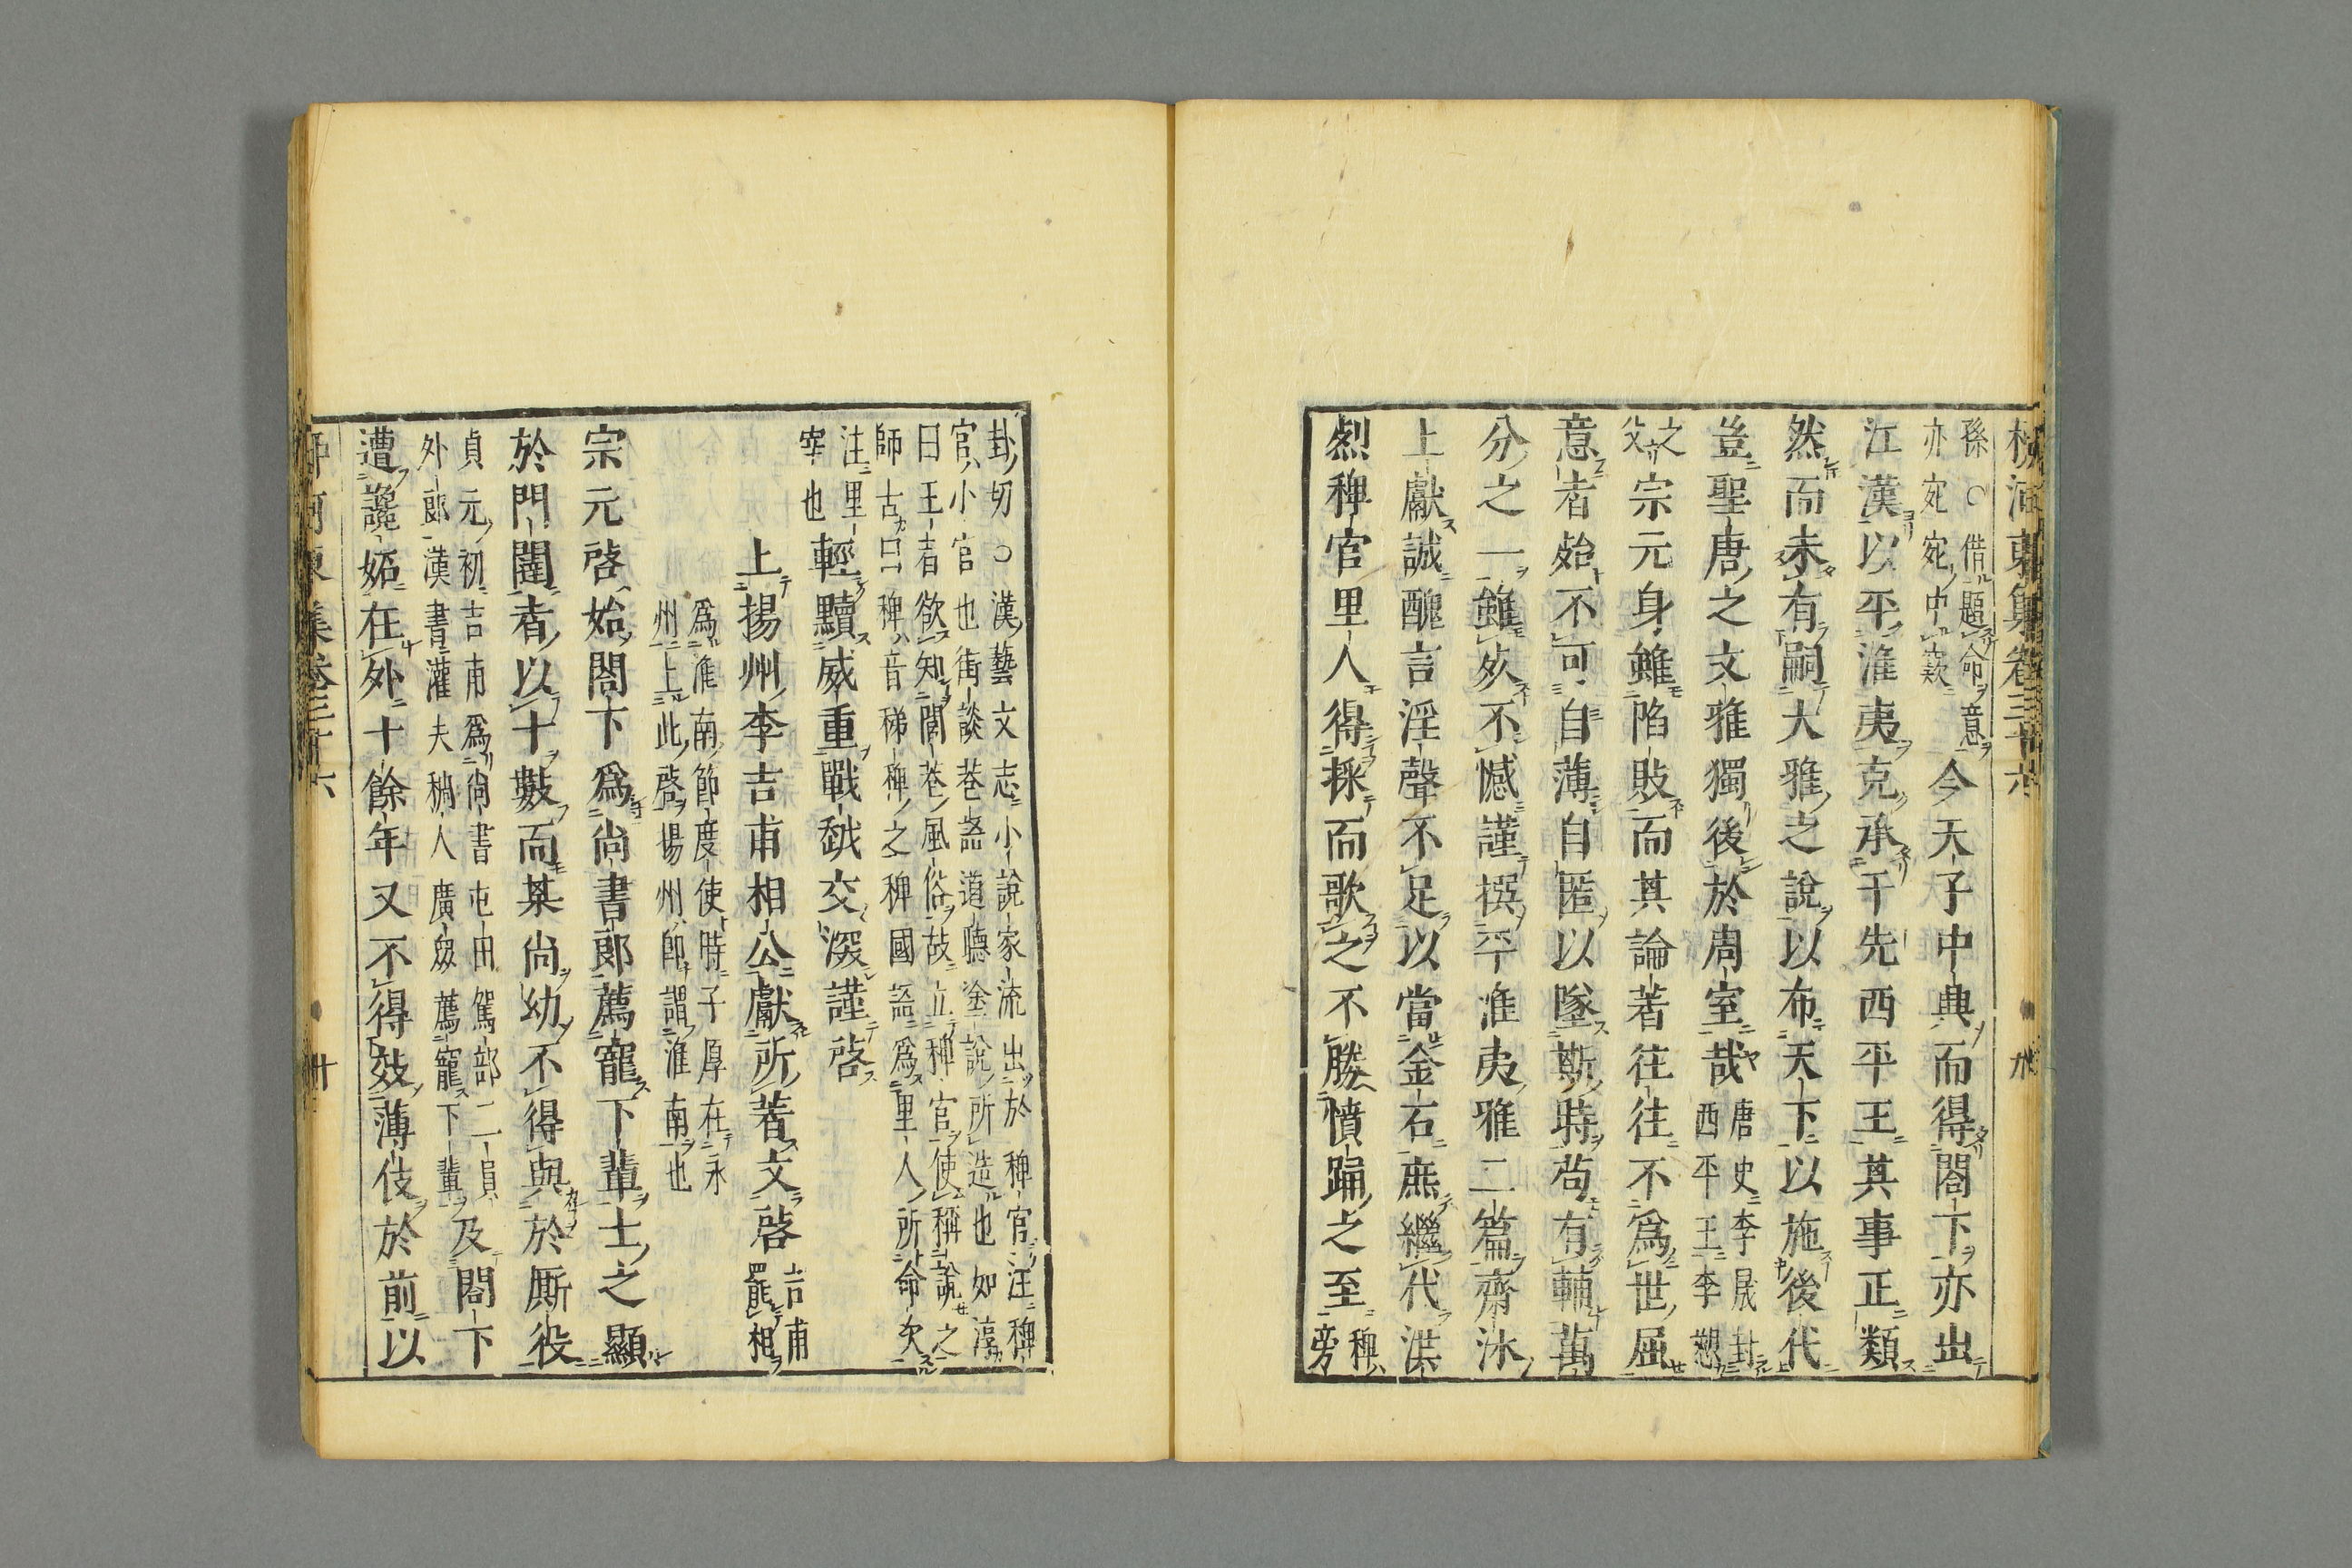 孫○借題命意
亦宛宛中款
今天子中興而得閤下亦出
江漢以平淮夷克承于先西平王其事正類
然而未有嗣大雅之說以布天下以施後代
豈聖唐之文雅獨後於周室哉
唐史李晟封
西平王李愬
之
父
宗元身雖陷敗而其論著往往不爲世屈
意者殆不可自薄自匿以墜斯時苟有輔萬
分之一雖死不憾謹撰平淮夷雅二篇齋沐
上獻誠醜言淫聲不足以當金石庶繼代洪
烈稗官里人得採而歌之不勝憤踊之至
稗
旁
卦切○漢藝文志小說家流出於稗官注稗
官小官也街談巷語道聽塗說所造也如淳
曰王者欲知閭巷風俗故立稗官使稱說之
師古曰稗音稊稗之稗國語爲里人所命次
注里
宰也
輕黷威重戰越交深謹啓
上揚州李吉甫相公獻所著文啓
吉甫
罷相
爲淮南節度使時子厚在永
州上此啓揚州即謂淮南也
宗元啓始閤下爲尚書郎薦寵下輩士之顯
於門闥者以十數而某尚幼不得與於厮役
貞元初吉甫爲尚書屯田駕部二員
外郎漢書灌夫稠人廣衆薦寵下輩
及閤下
遭讒妬在外十餘年又不得效薄伎於前以